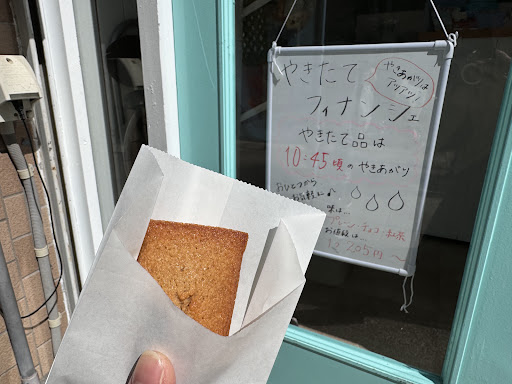 やきたて
やきあがりは
アツアツ!
フィナンシェ
やきたて品は
10:45頃のやきあがり
おひとつから
味は…
プレーン・チョコ・紅茶
お値段は